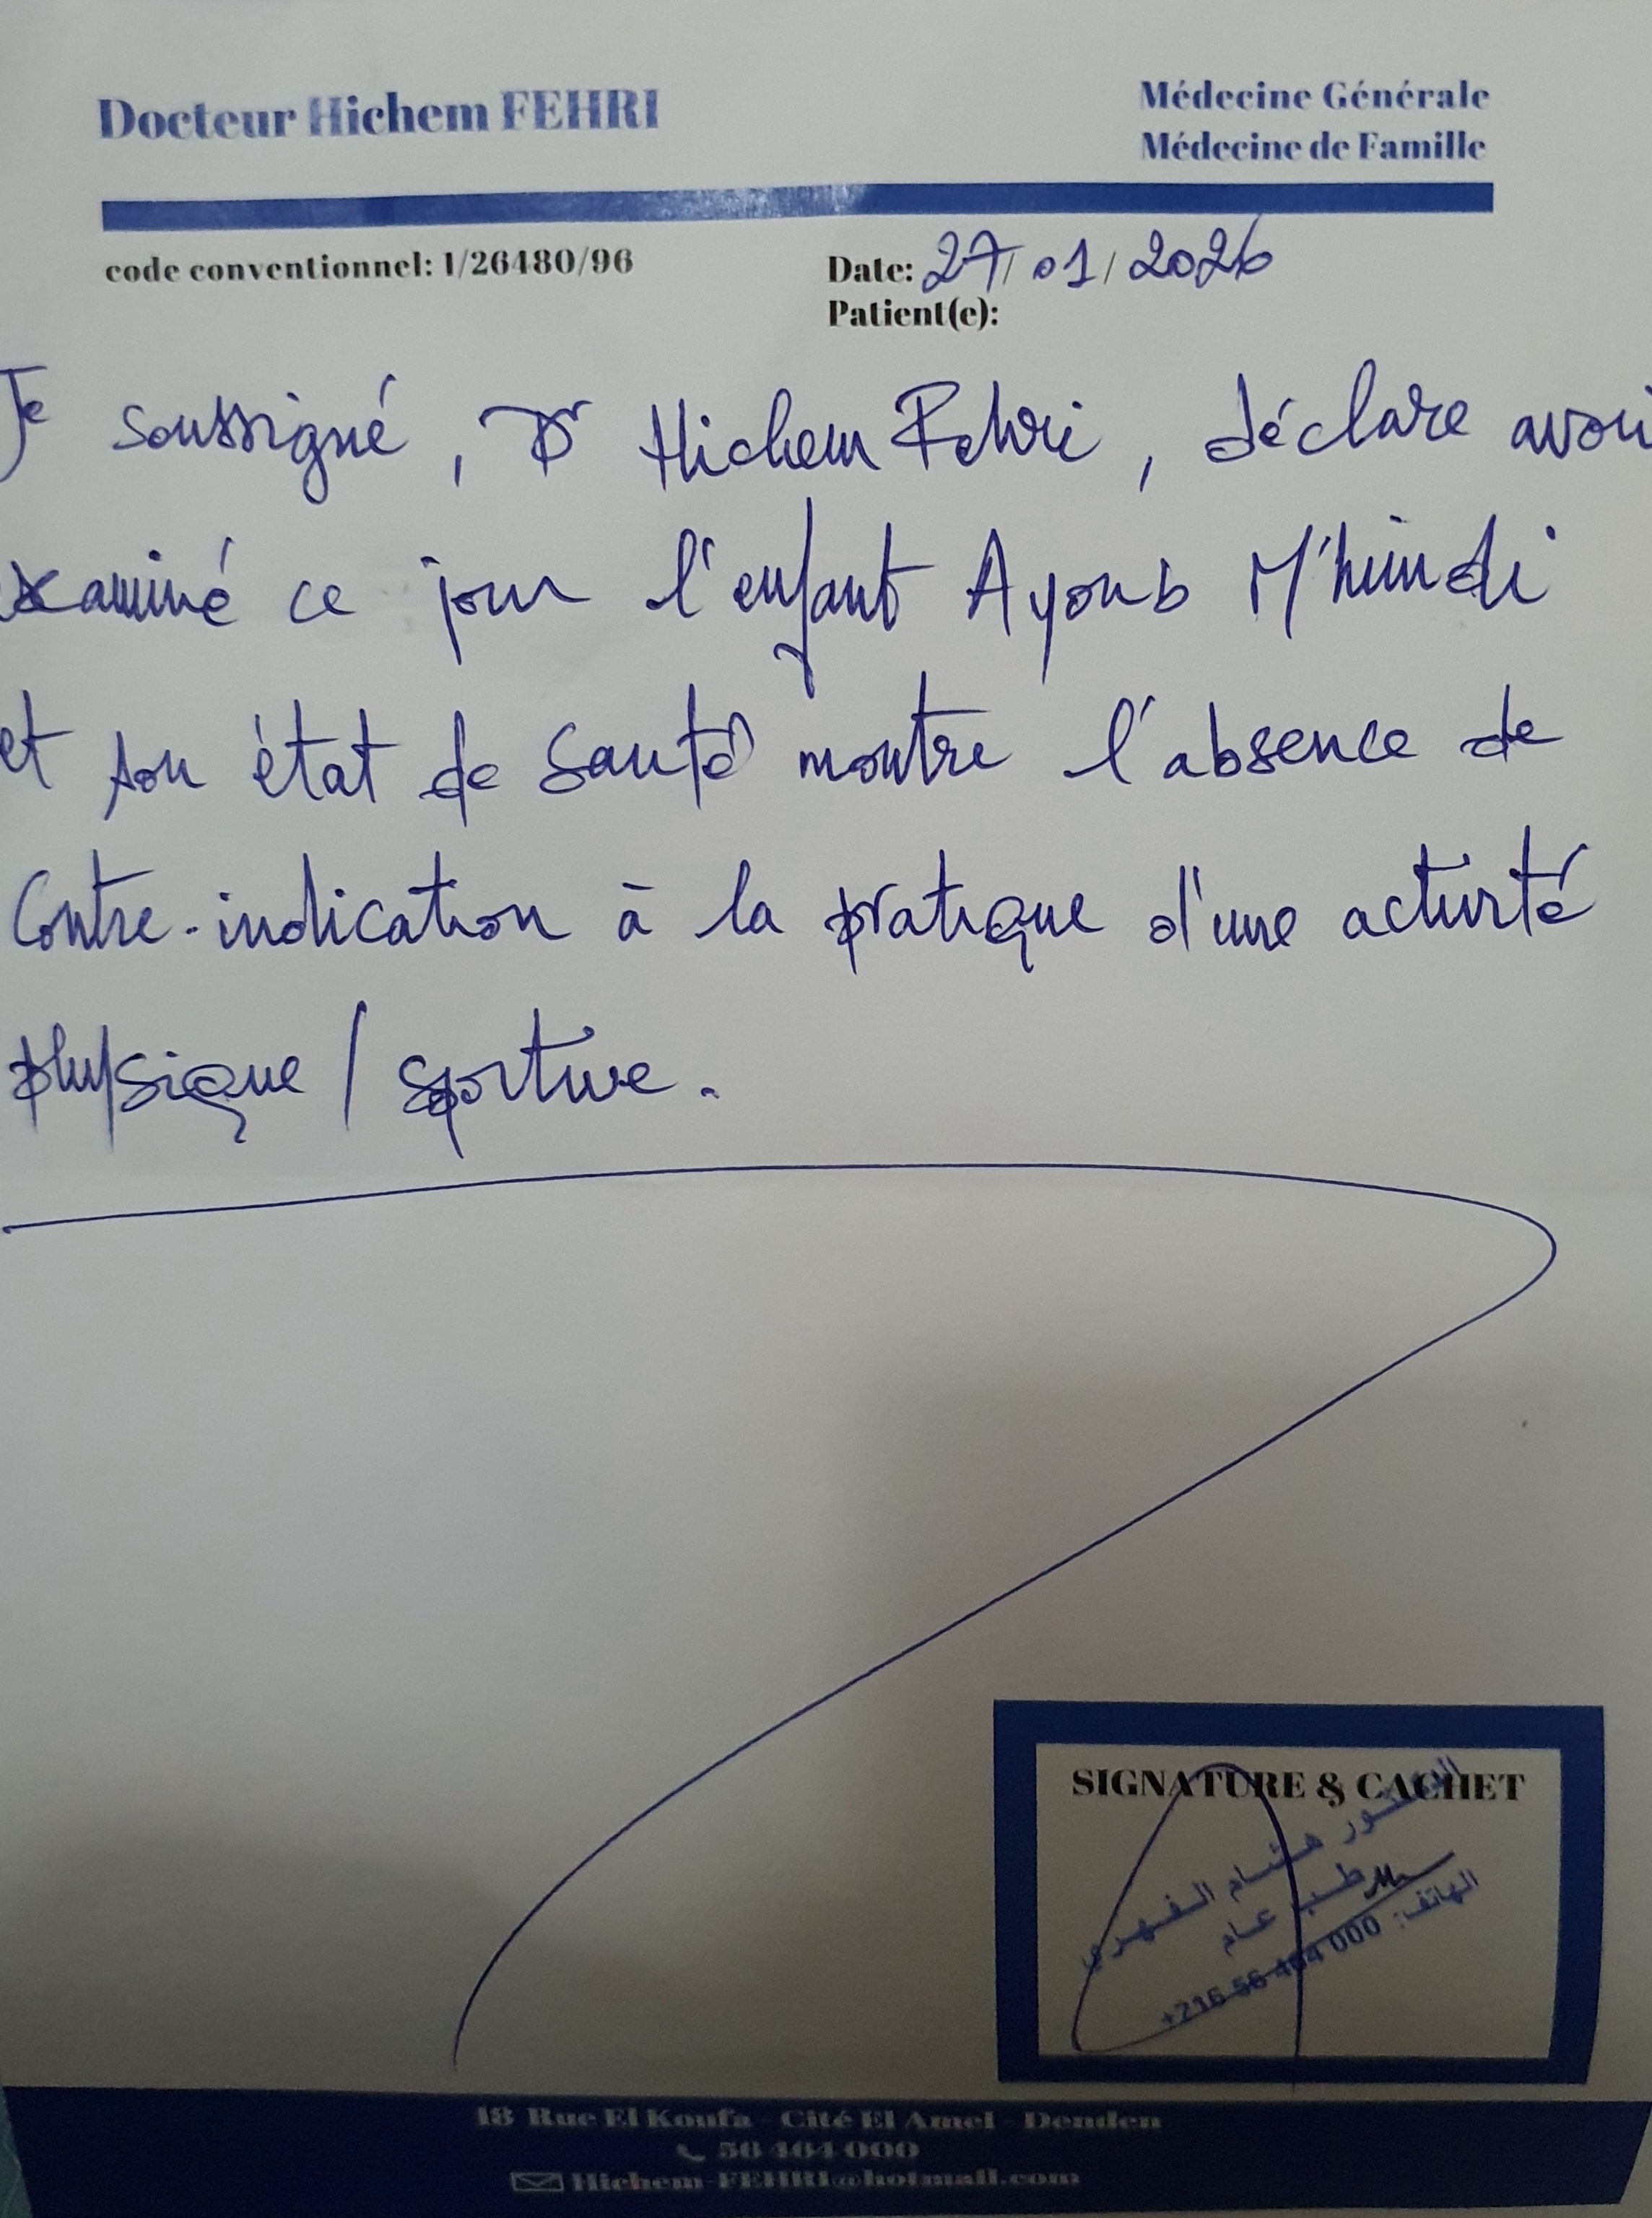 Docteur Hichem FEHRI
Médecine Générale
Médecine de Famille
code conventionnel: 1/26480/96
Date: 27/ 01/ 2026
Patient(e):
Je soussigné, Dr Hichem Fehri, déclare avoir
examiné ce jour l'enfant Ayoub M'himdi
et son état de santé montre l'absence de
Contre-indication à la pratique d'une activité
physique / sportive.
SIGNATURE & CACHET
الدكتور هشام الفهري
طب عام
الهاتف: 000 464 56 216+
18 Rue El Koufa - Cité El Amel - Denden
56 464 000
Hichem-FEHRI@hotmail.com